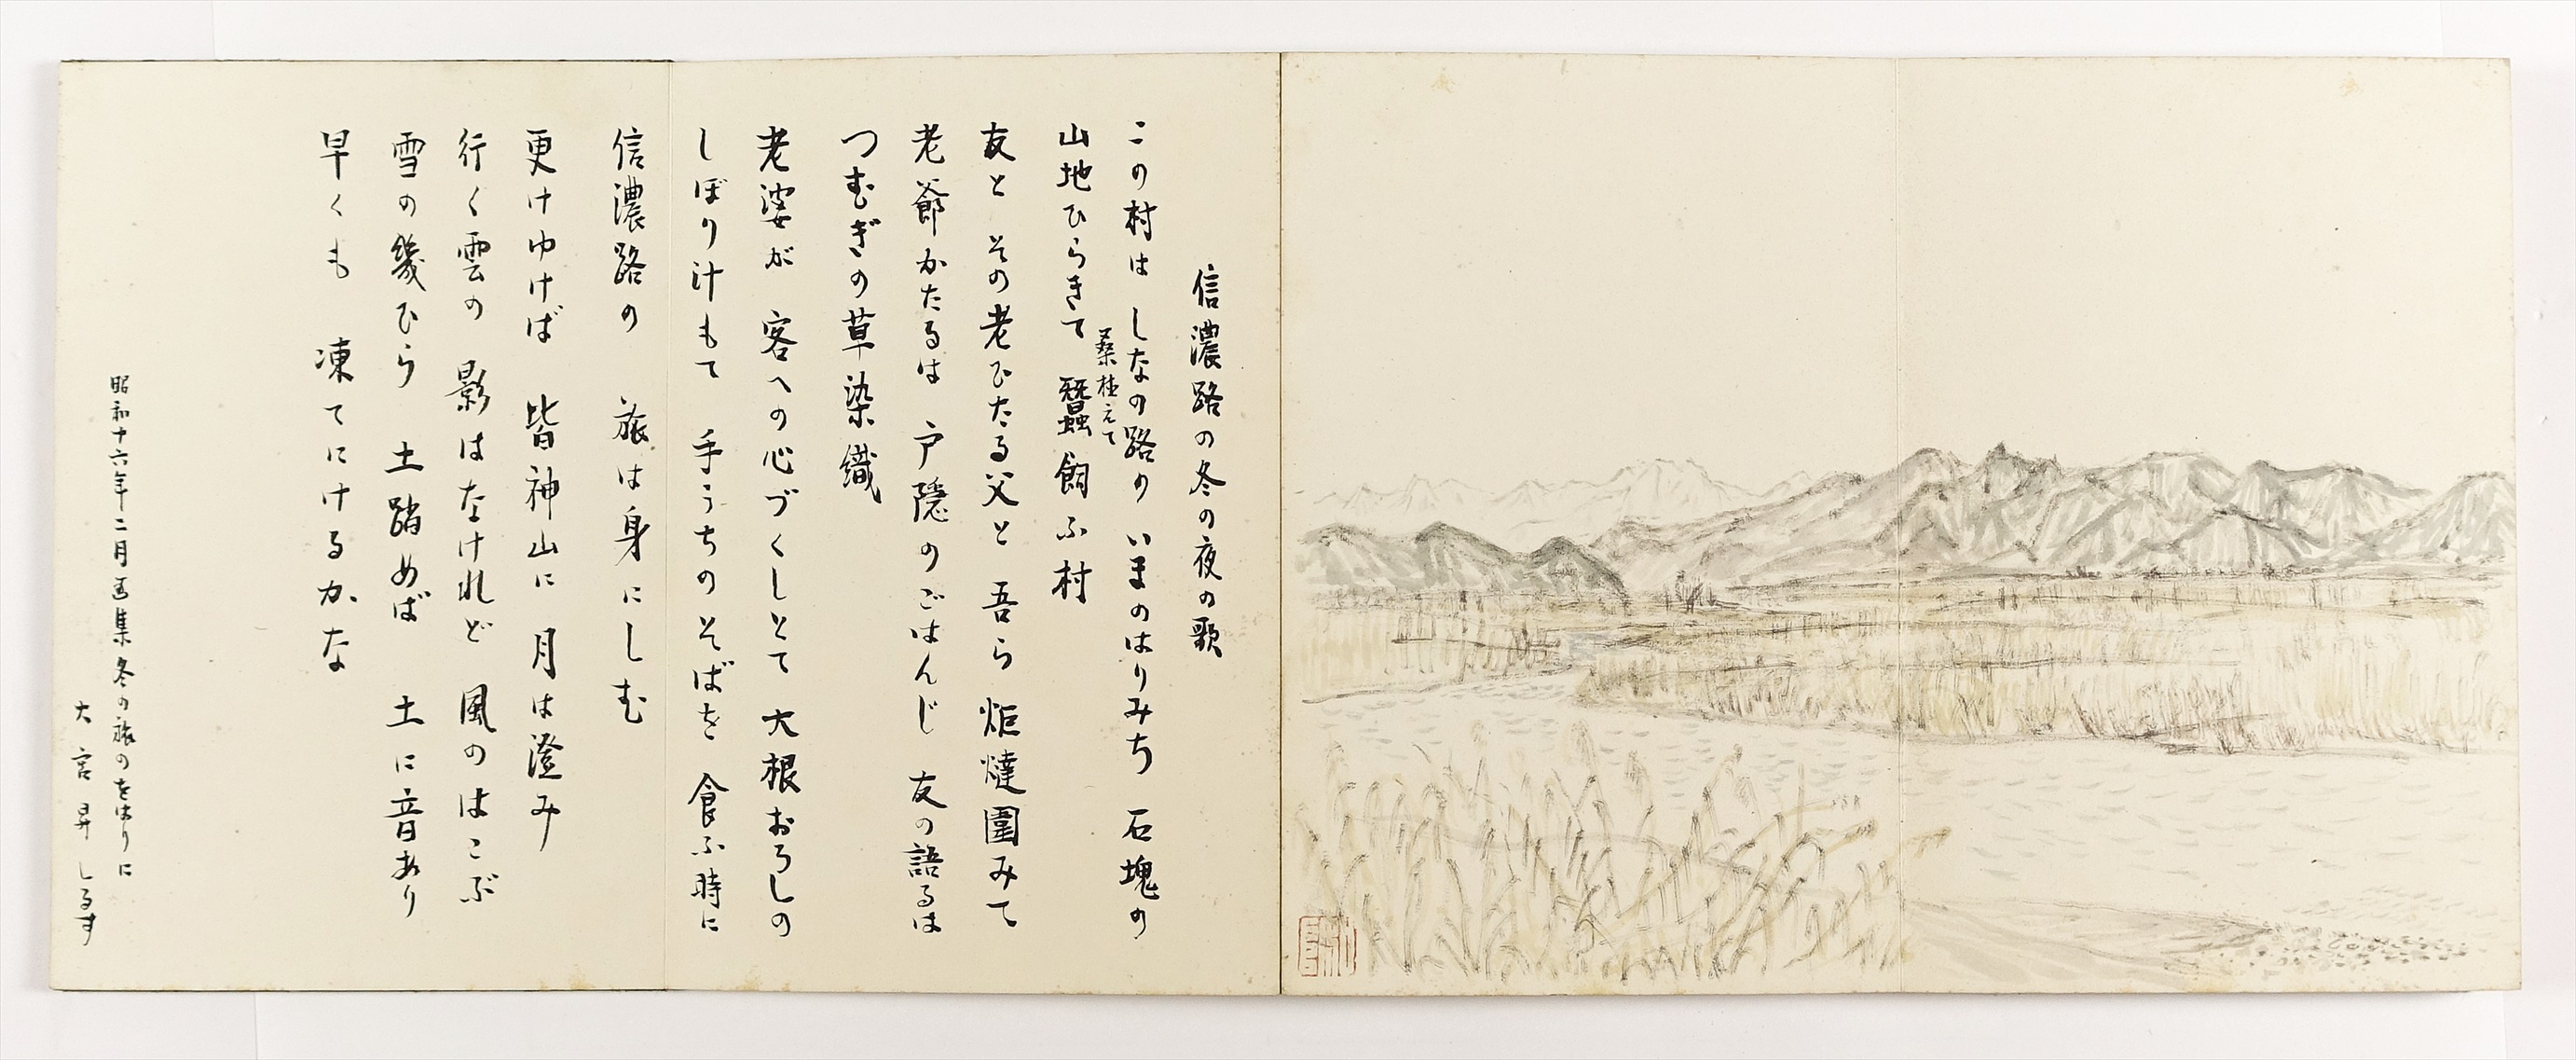 信濃路の冬の夜の歌
この村は しなの路の いまのはりみち 石塊の
山地ひらきて 桑植えて 蠶飼ふ村
友と その老ひたる父と 吾ら 炬燵圍みて
老爺かたるは 戸隠のごはんじ 友の語るは
つむぎの草染織
老婆が 客への心づくしとて 大根おろしの
しぼり汁もて 手うちのそばを 食ふ時に
信濃路の 旅は身にしむ
更けゆけば 皆神山に 月は澄み
行く雲の 影はなけれど 風のはこぶ
雪の幾ひら 土踏めば 土に音あり
早くも 凍てにけるかな
昭和十六年二月画集冬の旅のをはりに
大宮昇しるす